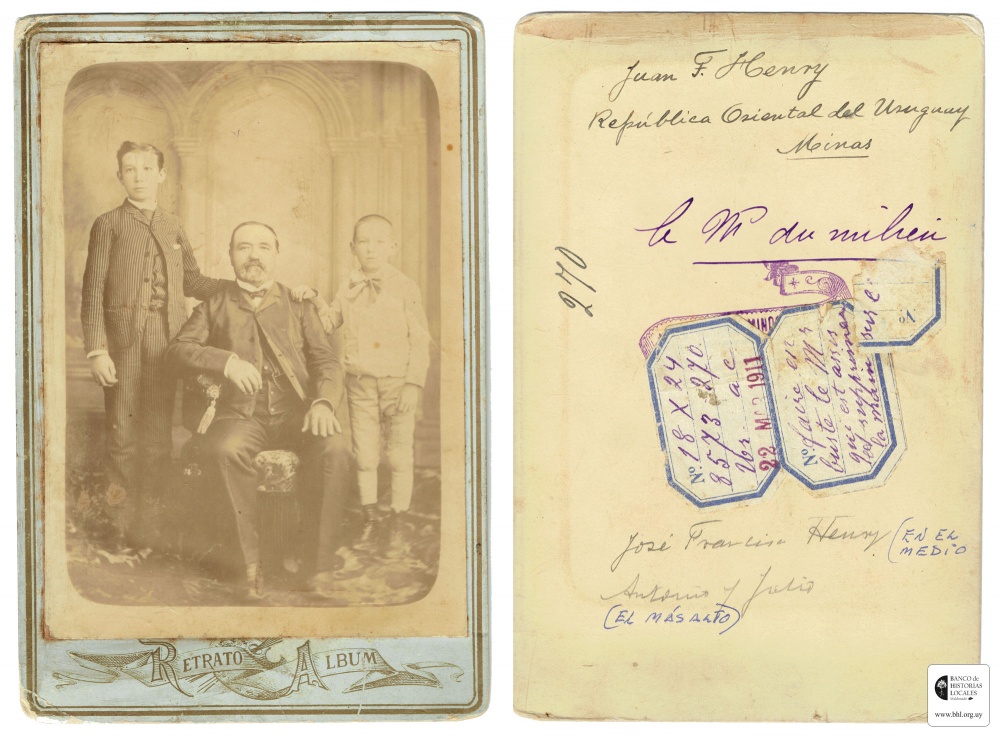 RETRATO ALBUM
Juan F. Henry
República Oriental del Uruguay
Minas
le Mr du milieu
270
No. 18 X 24
8573 270
a c
22 MAR 1911
No. faire en
buste le Mr
qui est assis
supprimer
la main sur l'
No
José Francisco Henry (EN EL
MEDIO
Antonio y Julio
(EL MÁS ALTO)
BANCO de
HISTORIAS
LOCALES
www.bhl.org.uy